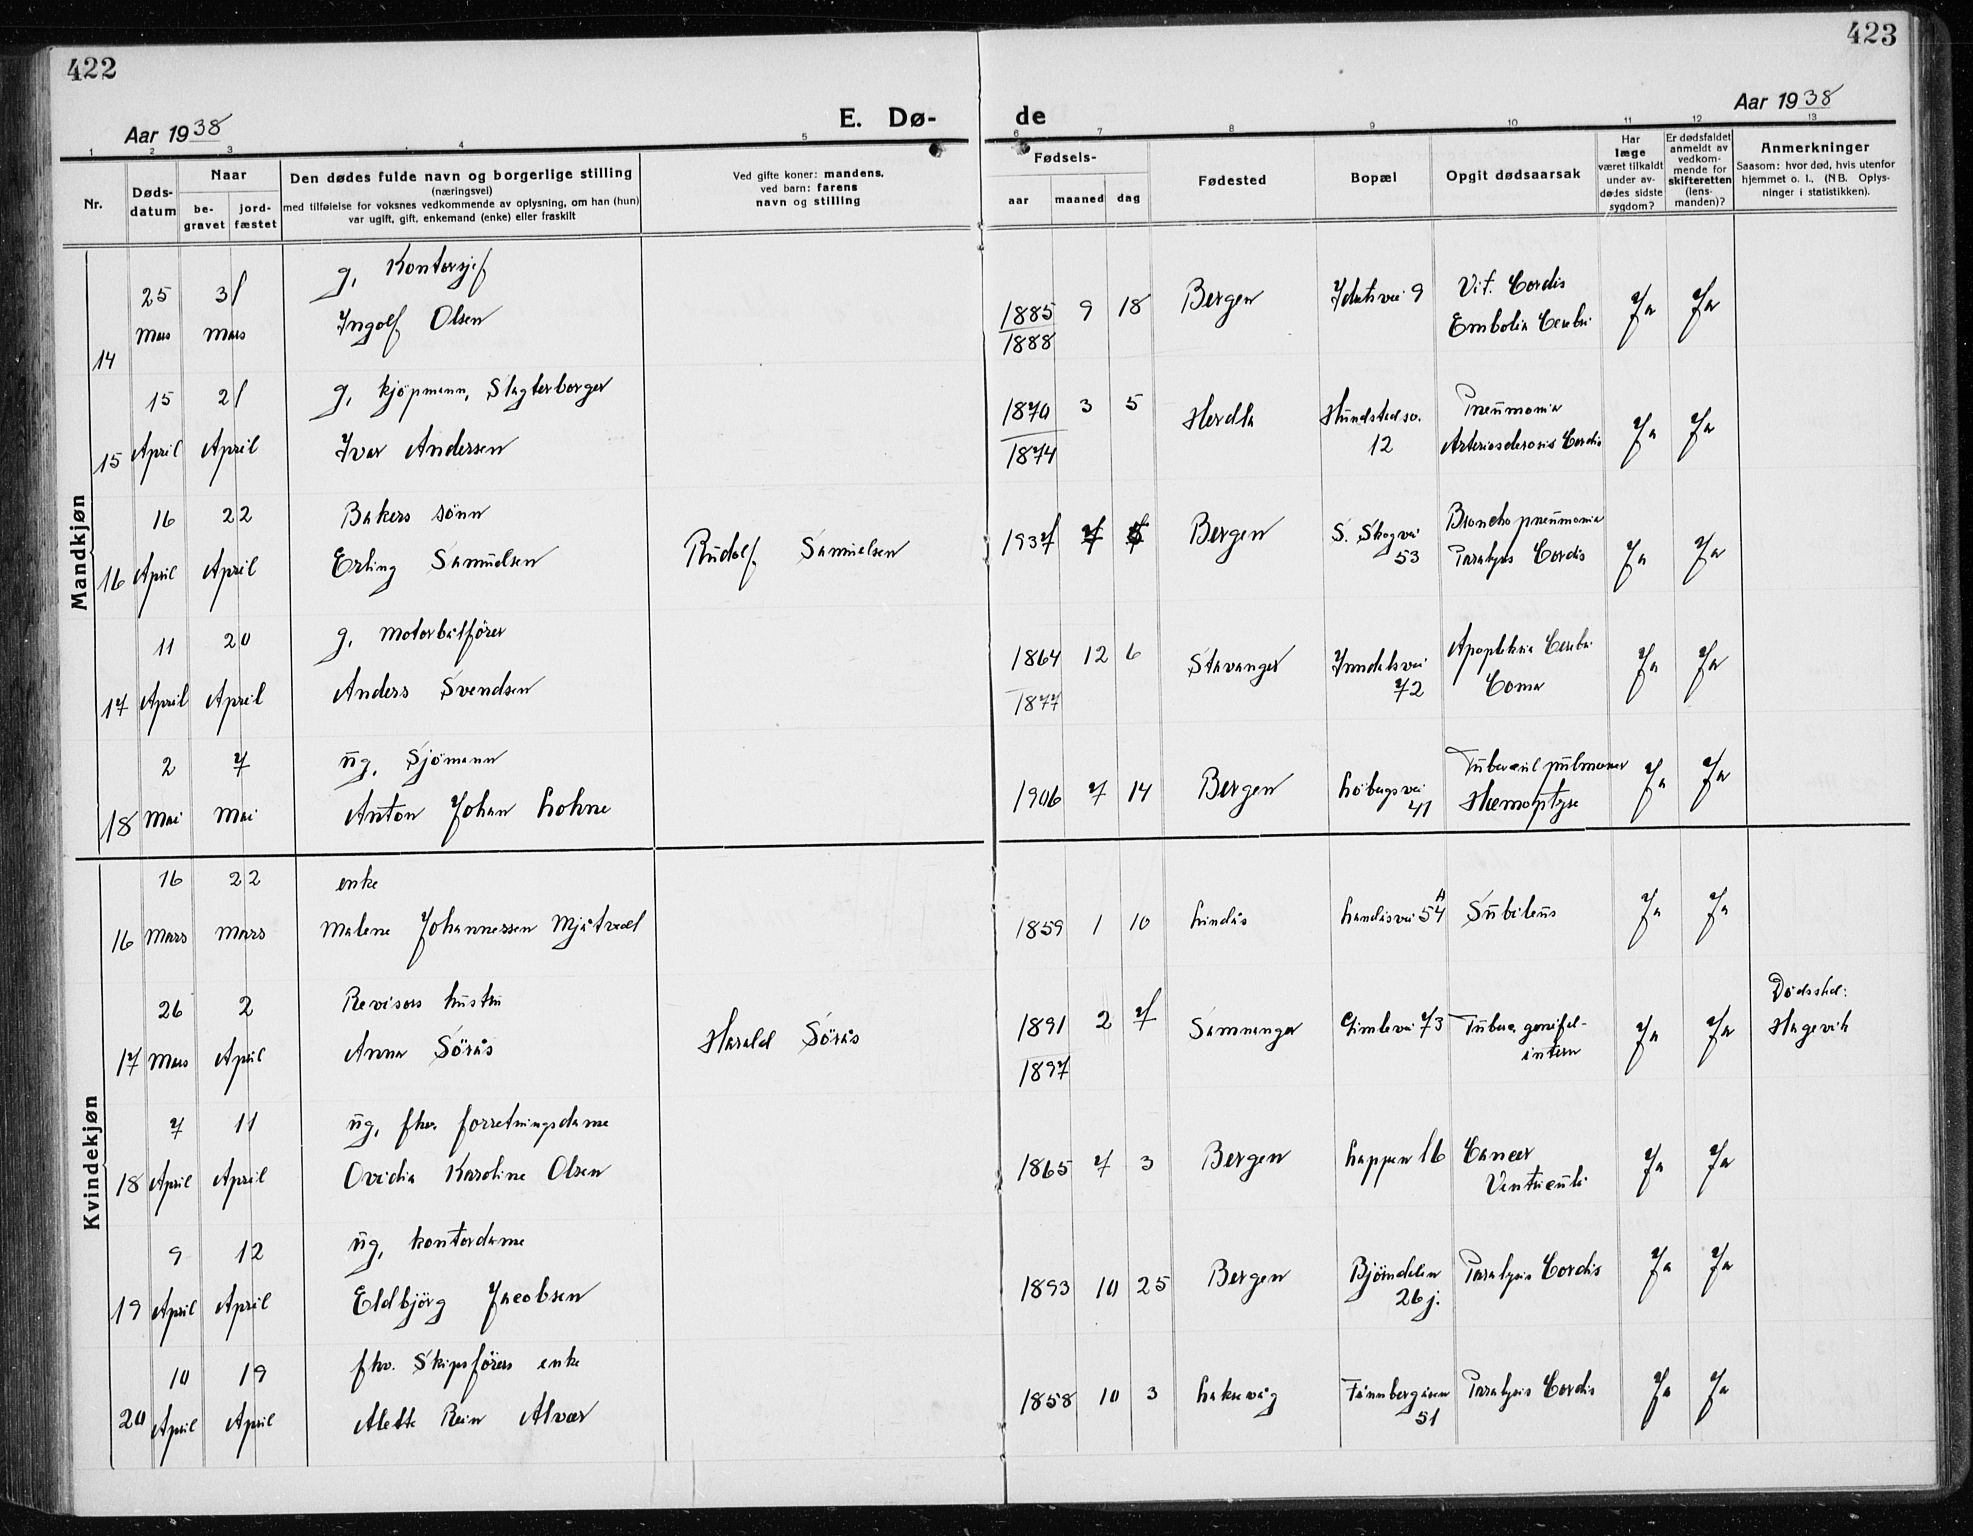 422
423
Aar 1938
E. Dø-
de
Aar 1938
1 2 3 4 5 6 7 8 9 10 11 12 13
Nr.
Døds-
datum
Naar
be-
gravet
jord-
fæstet
Den dødes fulde navn og borgerlige stilling
(næringsvei)
med tilføielse for voksnes vedkommende av oplysning, om han (hun)
var ugift, gift, enkemand (enke) eller fraskilt
Ved gifte koner: mandens,
ved barn: farens
navn og stilling
Fødsels-
aar maaned dag
Fødested
Bopæl
Opgit dødsaarsak
Har
læge
været tilkaldt
under av-
dødes sidste
sygdom?
Er dødsfaldet
anmeldt av
vedkom-
mende for
skifteretten
(lens-
manden)?
Anmerkninger
Saasom: hvor død, hvis utenfor
hjemmet o. l., (NB. Oplys-
ninger i statistikken).
Mandkjøn
g, Kontorsjef
25 31 1885 9 18 Bergen 9 Vit. Cordis
Mars Mars Ingolf Olsen 1888 Embolia Cerebri Ja Ja
14
15 21 g, kjöpmann, Slagterborger
1870 3 5 Herdla Hundstedsv. Pneumonia
15 April April Ivar Andersen 1874 12 Arteriosclerosis Cordis Ja Ja
16 22 Bakers sønn
Rudolf Samuelsen 1937 Bergen S. Skogvei Bronchopneumonia
16 April April Erling Samuelsen 53 Paralysis Cordis Ja Ja
11 20 g, motorbåtfører
1864 12 6 Stavanger Inndalsvei Apoplekia Cerebri Ja Ja
17 April April Anders Svendsen 1877 72 Coma
2 7 ug, Sjömann
1906 7 14 Bergen Löbergsvei Tubercul pulmoner Ja Ja
18 Mai Mai Anton Johan Lohne 41 Hæmoptyse
Kvindekjøn
16 22 enke
16 Mars Mars Malene Johannessen Mjåtvedt 1859 1 10 Lindås Landåsvei 54 A Subileus Ja Ja
26 2 Revisors hustru
Harald Sörås 1891 2 7 Samnanger Gimlevei 73 Ja Ja Dødssted:
Hagevik
17 Mars April Anna Sörås 1897 intern
7 11 ug, fhv. forretningsdame
1865 7 3 Bergen Lappen 16 Cancer
18 April April Ovidia Karoline Olsen Ventriculi Ja Ja
9 12 ug, kontordame
1893 10 25 Bergen Björndalen Paralysis Cordis Ja Ja
19 April April Eldbjörg Jacobsen 26 j.
10 19 fhv. Skipsförers enke
1858 10 3 Laksevåg Finnbergåsen Paralysis Cordis Ja Ja
20 April April Alette Rein Alvær 51